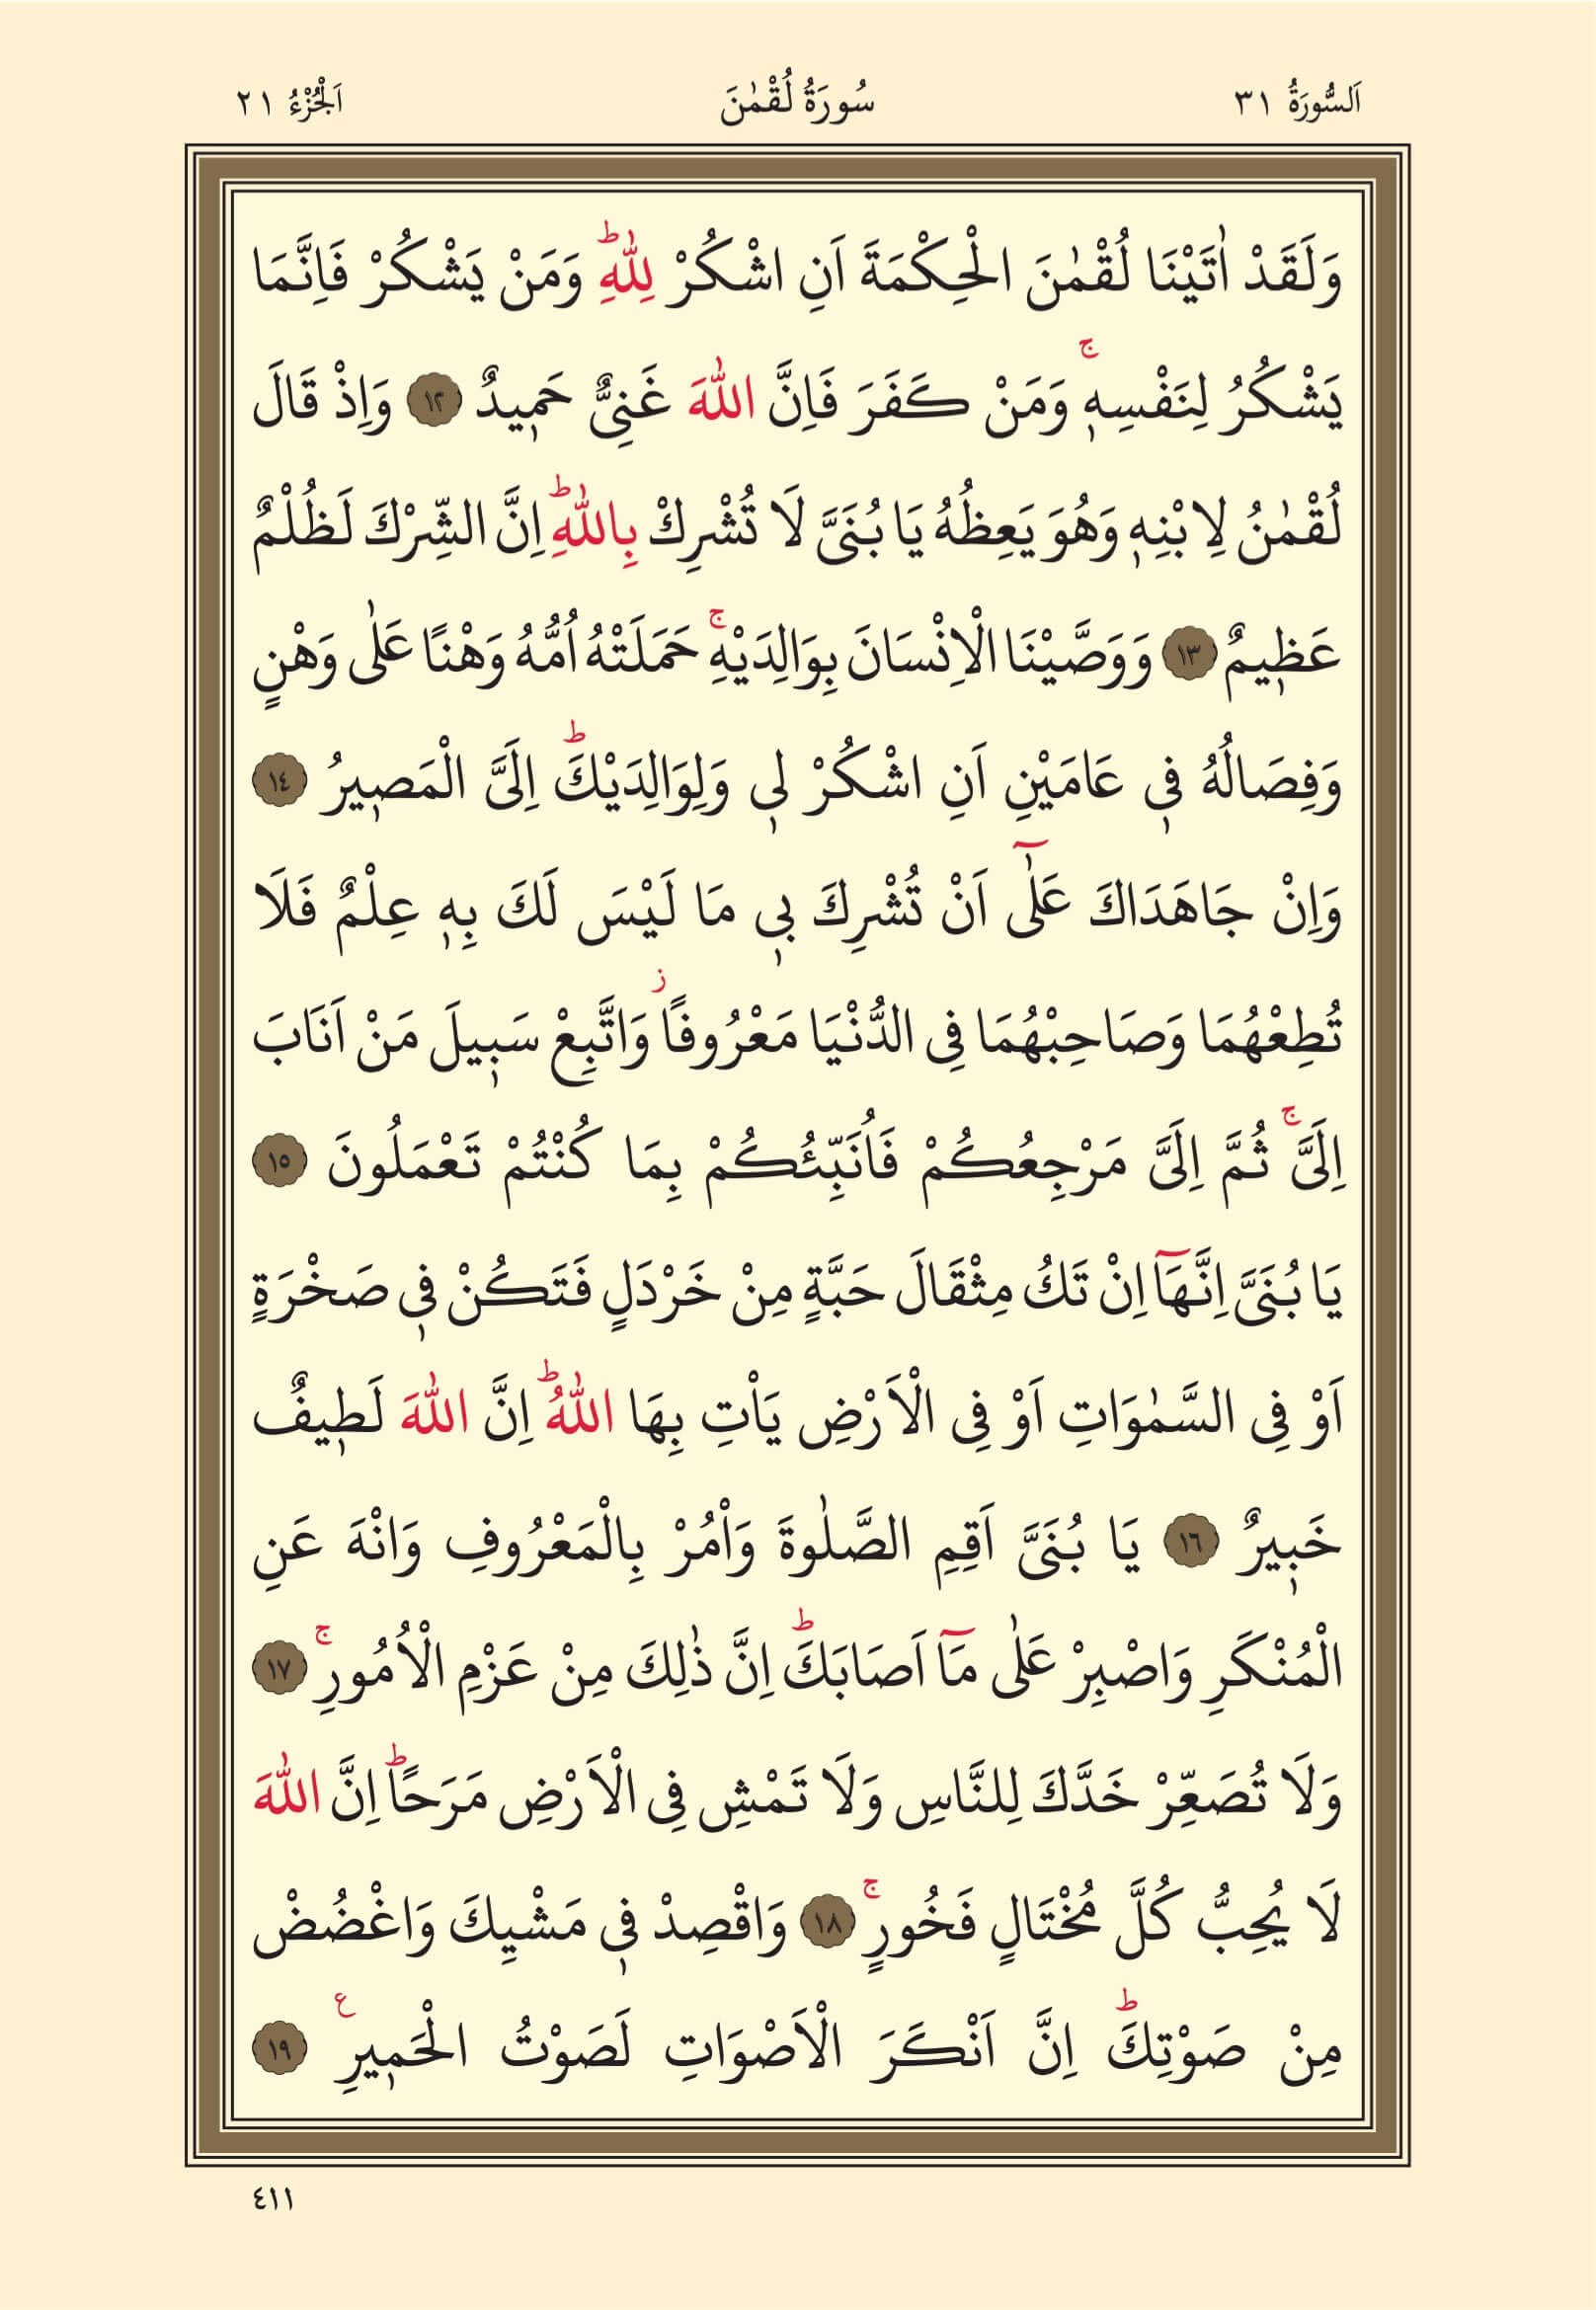 اَلسُّورَةُ ٣١ سُورَةُ لُقْمٰنَ اَلْجُزْءُ ٢١
وَلَقَدْ اٰتَيْنَا لُقْمٰنَ الْحِكْمَةَ اَنِ اشْكُرْ لِلّٰهِؕ وَمَنْ يَشْكُرْ فَاِنَّمَا
يَشْكُرُ لِنَفْسِهٖۚ وَمَنْ كَفَرَ فَاِنَّ اللّٰهَ غَنِىٌّ حَمٖيدٌ ١٢ وَاِذْ قَالَ
لُقْمٰنُ لِابْنِهٖ وَهُوَ يَعِظُهُ يَا بُنَىَّ لَا تُشْرِكْ بِاللّٰهِؕ اِنَّ الشِّرْكَ لَظُلْمٌ
عَظٖيمٌ ١٣ وَوَصَّيْنَا الْاِنْسَانَ بِوَالِدَيْهِۚ حَمَلَتْهُ اُمُّهُ وَهْنًا عَلٰى وَهْنٍ
وَفِصَالُهُ فٖى عَامَيْنِ اَنِ اشْكُرْ لٖى وَلِوَالِدَيْكَؕ اِلَىَّ الْمَصٖيرُ ١٤
وَاِنْ جَاهَدَاكَ عَلٰٓى اَنْ تُشْرِكَ بٖى مَا لَيْسَ لَكَ بِهٖ عِلْمٌ فَلَا
تُطِعْهُمَا وَصَاحِبْهُمَا فِى الدُّنْيَا مَعْرُوفًاؗ وَاتَّبِعْ سَبٖيلَ مَنْ اَنَابَ
اِلَىَّۚ ثُمَّ اِلَىَّ مَرْجِعُكُمْ فَاُنَبِّئُكُمْ بِمَا كُنْتُمْ تَعْمَلُونَ ١٥
يَا بُنَىَّ اِنَّهَآ اِنْ تَكُ مِثْقَالَ حَبَّةٍ مِنْ خَرْدَلٍ فَتَكُنْ فٖى صَخْرَةٍ
اَوْ فِى السَّمٰوَاتِ اَوْ فِى الْاَرْضِ يَاْتِ بِهَا اللّٰهُؕ اِنَّ اللّٰهَ لَطٖيفٌ
خَبٖيرٌ ١٦ يَا بُنَىَّ اَقِمِ الصَّلٰوةَ وَاْمُرْ بِالْمَعْرُوفِ وَانْهَ عَنِ
الْمُنْكَرِ وَاصْبِرْ عَلٰى مَآ اَصَابَكَؕ اِنَّ ذٰلِكَ مِنْ عَزْمِ الْاُمُورِۚ ١٧
وَلَا تُصَعِّرْ خَدَّكَ لِلنَّاسِ وَلَا تَمْشِ فِى الْاَرْضِ مَرَحًاؕ اِنَّ اللّٰهَ
لَا يُحِبُّ كُلَّ مُخْتَالٍ فَخُورٍۚ ١٨ وَاقْصِدْ فٖى مَشْيِكَ وَاغْضُضْ
مِنْ صَوْتِكَؕ اِنَّ اَنْكَرَ الْاَصْوَاتِ لَصَوْتُ الْحَمٖيرِ ع ١٩
٤١١